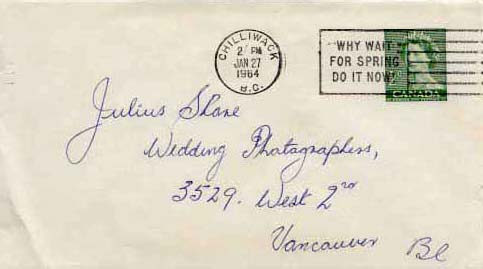 CHILLIWACK
2 PM
JAN 27
1964
B.C.
WHY WAIT
FOR SPRING
DO IT NOW!
CANADA
Julius Shore
Wedding Photagraphers,
3529. West 2nd
Vancouver BC